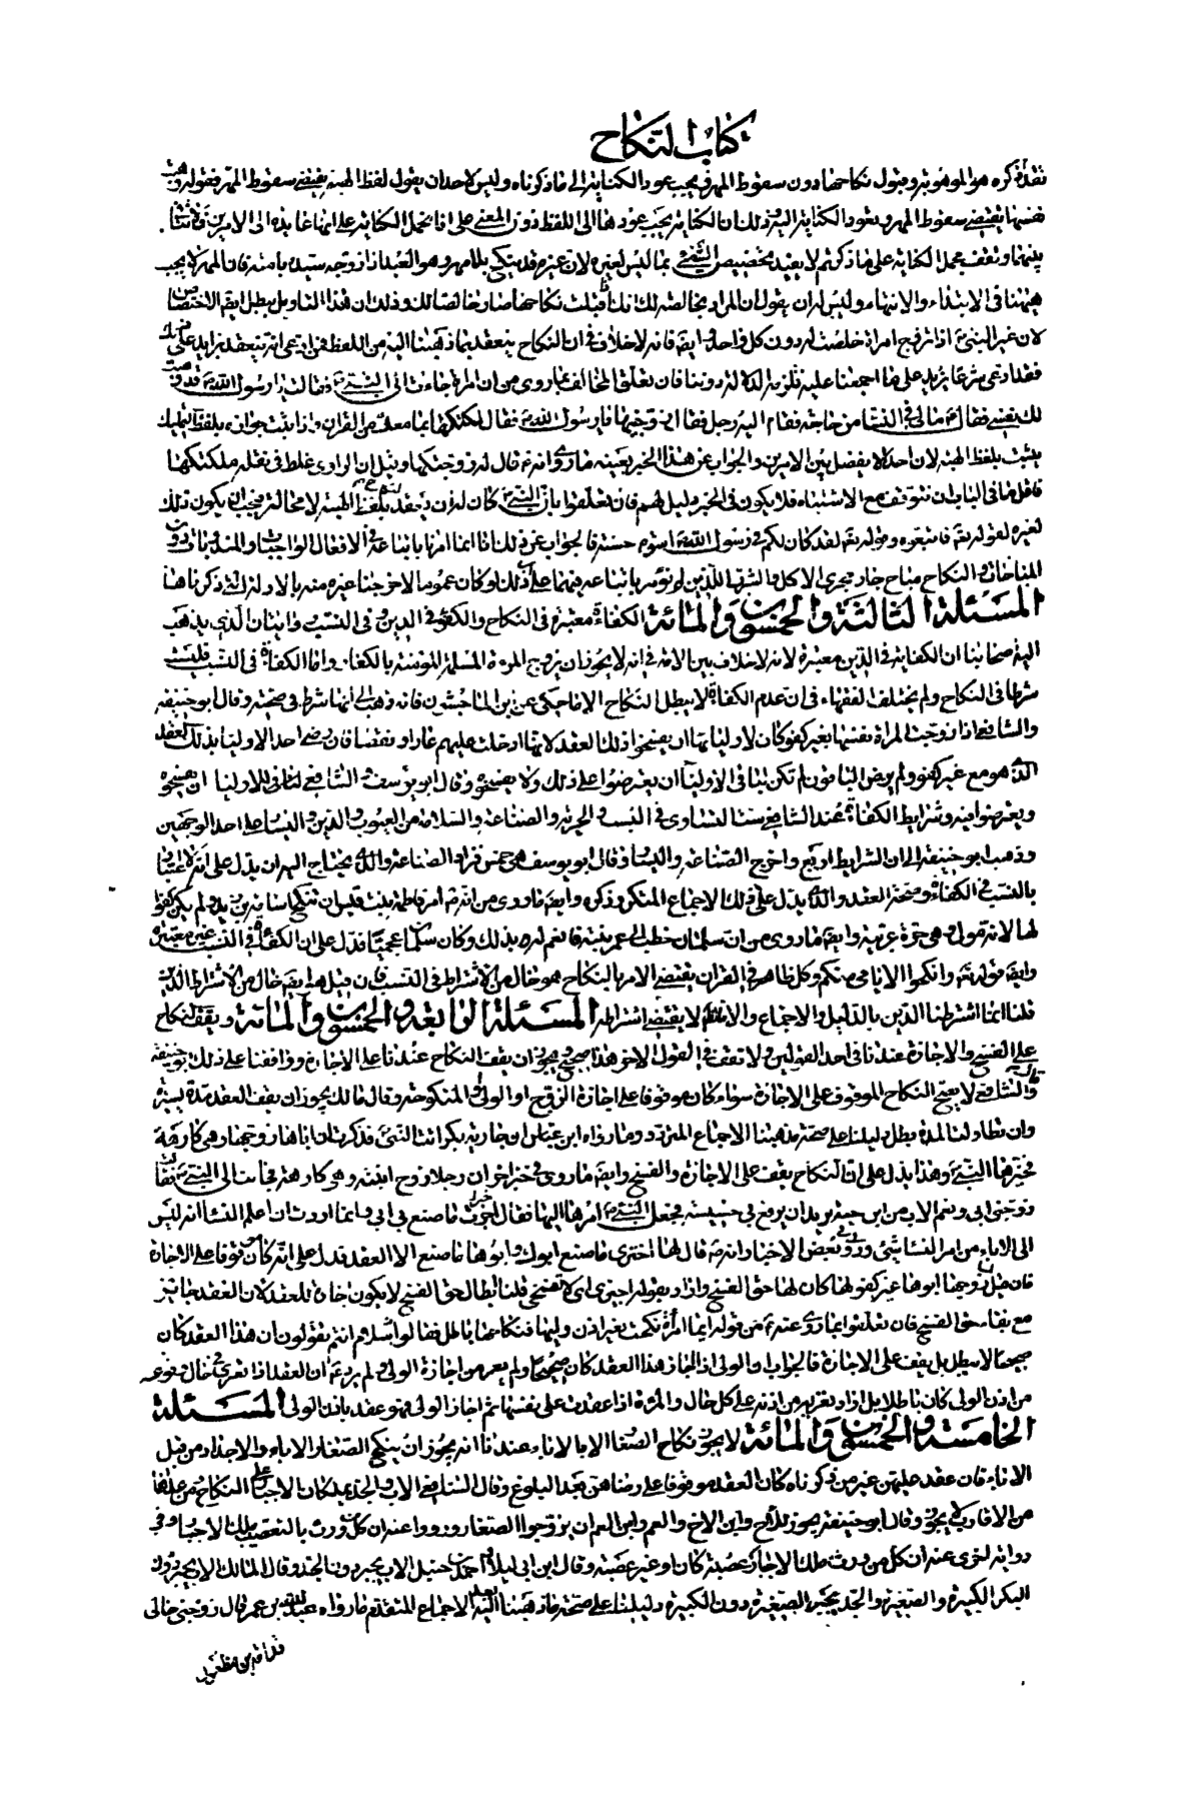 كتاب النكاح
تقدم ذكره هو الموهوبة وقبول نكاحها دون سقوط المهر فيجب عود الكناية إلى ما ذكرناه وليس لاحد ان يقول لفظ الهبة يقتضي سقوط المهر فقوله وهبت
نفسها يقتضي سقوط المهر ويعود الكناية اليه وذلك ان الكناية يجب عودها الى اللفظ دون المعنى على انا نحمل الكناية على انها عايدة الى الامرين
بينهما ونقف بحمل الكناية على ما ذكرتم لا يفيد تخصيص النبي بما ليس لغيره لان غيره قد ينكح بلا مهر وهو العبد اذا زوجه سيده بامته فان المهر لا يجب
هيهنا فى الابتداء والانتهاء وليس له ان يقول ان المراد بخالصة لك انك اذا قبلت نكاحها صارت خالصة لك وذلك ان هذا التاويل يبطل ايضا الاختصاص
لان غير النبي اذا تزوج امراة خلصت له دون كل واحد وايضا فانه لا خلاف فى ان النكاح ينعقد بما ذهبنا اليه من اللفظ فمن ادعى انه ينعقد بزايد على ذلك
فقد ادعى شرعا يزيد على ما اجمعنا عليه فلزمه الدلالة دوننا فان تعلق المخالف بما روى من ان امراة جاءت الى النبي فقالت يا رسول الله قد وهبت
لك نفسي فقال ما لى فى النساء من حاجة فقام اليه رجل فقال زوجنيها يا رسول الله فقال ملكتكها بما معك من القران واذا ثبت جوازه بلفظ التمليك
يثبت بلفظ الهبة لان احدا لا يفصل بين الامرين والجواب عن هذا الخبر بعينه ما روى انه قال له زوجتكها وقيل ان الراوى غلط فى نقله ملكتكها
فاقل ما فى الباب ان نتوقف مع الاشتباه فلا يكون فى الخبر دليل لهم فان تعلقوا بان النبي كان له ان يعقد بلفظ الهبة لا محالة فيجب ان يكون ذلك
لغيره لقوله تعالى فاتبعوه وقوله تعالى لقد كان لكم فى رسول الله اسوة حسنة فالجواب عن ذلك انا انما امرنا باتباعه فى الافعال الواجبات والمندوبات دون
المباحات والنكاح مباح جار مجرى الاكل والشرب اللذين لم نؤمر باتباعه فيهما على ان ذلك لو كان عموما لاخرجنا غيره منه بالادلة التي ذكرناها
المسئلة الثالثة والخمسون والمائة الكفاءة معتبرة فى النكاح والكفؤ فى الدين وفى النسب روايتان الذي يذهب
اليه اصحابنا ان الكفاية فى الدين معتبرة لانه لا خلاف بين الامة فى انه لا يجوز ان يزوج المرءة المسلمة المؤمنة بالكفار واما الكفاءة فى النسب فليست
شرطا فى النكاح ولم يختلف الفقهاء فى ان عدم الكفاءة لا يبطل النكاح الا ما حكى عن ابن الماجشون فانه ذهب الى انها شرط فى صحته وقال ابو حنيفة
والشافعي اذا زوجت المراة نفسها بغير كفو كان لاوليائها ان يفسخوا ذلك العقد لانها ادخلت عليهم عارا ونقصا فان رضي احد الاولياء بذلك العقد
الذي هو مع غير كفو ولم يرض الباقون لم تكن لباقى الاولياء ان يعترضوا على ذلك ولا يفسخوه وقال ابو يوسف والشافعي لباقى الاولياء ان يفسخوه
ويعترضوا فيه وشرايط الكفاءة عند الشافعي ست التساوى فى النسب والحرية والصناعة والسلامة من العيوب والدين واليسار على احد الوجهين
وذهب ابو حنيفة الى ان الشرايط اربع واخرج الصناعة واليسار وقال ابو يوسف هى خمس فزاد الصناعة والذي يحتاج اليه ان يدل على انه لا اعتبار
بالنسب فى الكفاءة وصحة العقد والذي يدل على ذلك الاجماع المتكرر ذكره وايضا ما روى من انه امر فاطمة بنت قيس ان تنكح اسامة بن زيد ولم يكن كفوا
لها لانه مولى وهى حرة عربية وايضا ما روى من ان سلمان خطب الى عربية فانعم له بذلك وكان سلمان عجميا فدل على ان الكفاءة فى النسب غير معتبرة
وايضا قوله تعالى وانكحوا الايامى منكم وكل ظاهر فى القران يقتضي الامر بالنكاح هو خال من الاشتراط فى النسب فان قيل هو ايضا خال من الاشتراط الدين
قلنا انما اشترطنا الدين بالدليل والاجماع والا فالظاهر لا يقتضي اشتراطه المسئلة الرابعة والخمسون والمائة ويقف النكاح
على الفسخ والاجازة عندنا فى احد القولين ولا تقف فى القول الاخر هذا صحيح ويجوز ان يقف النكاح عندنا على الاجازة ووافقنا على ذلك ابو حنيفة
وقال الشافعي لا يصح النكاح الموقوف على الاجازة سواء كان موقوفا على اجازة الزوج او الولى او المنكوحة وقال مالك يجوز ان يقف العقد مدة يسيرة
وان تطاولت المدة بطل دليلنا على صحة مذهبنا الاجماع المتردد وما رواه ابن عباس ان جارية بكرا اتت النبي فذكرت ان اباها زوجها وهى كارهة
فخيرها النبي وهذا يدل على ان النكاح يقف على الاجازة والفسخ وايضا ما روى فى خبر اخر ان رجلا زوج ابنته وهى كارهة فجاءت الى النبي فقالت
زوجنى ابى ونعم الاب من ابن اخيه يريد ان يرفع بى خسيسته فجعل النبي امرها اليها فقالت اجزت ما صنع بى ابى وانما اردت ان اعلم النساء انه ليس
الى الاباء من امر النساء شئ وروى فى بعض الاخبار انه قال لها اختارى ما صنع ابوك وابوها ما صنع الا العقد فدل على انه كان موقوفا على الاجازة
فان قيل زوجها ابوها غير كفو لها كان لها حق الفسخ واراد بقوله اجيزى اى لا تفسخى قلنا ابطال حق الفسخ لا يكون اجازة للعقد لان العقد جايز
مع بقاء حق الفسخ فان تعلقوا بما روى عنه من قوله ايما امرأة نكحت بغير اذن وليها فنكاحها باطل فقالوا انتم تقولون ان هذا العقد كان
صحيحا لا يبطل بل يقف على الاجازة فالجواب ان الولى اذا اجاز هذا العقد كان صحيحا ولم يعر من اجازة الولى فلم يرد ان العقد اذا تعرى فى حال وقوعه
من اذن الولى كان باطلا بل اراد تعريه من اذنه على كل حال والمرءة اذا عقدت على نفسها ثم اجاز الولى فهو عقد باذن الولى المسئلة
الخامسة والخمسون والمائة لا يجوز نكاح الصغار الا بالاباء عندنا انه يجوز ان ينكح الصغار الاباء والاجداد من قبل
الاباء فان عقد عليهن غير من ذكرناه كان العقد موقوفا على رضاهن بعد البلوغ وقال الشافعي الاب والجد يملكان الاجبار على النكاح ومن عداهما
من الاقارب لا يجوز وقال ابو حنيفة يجوز للاخ وابن الاخ والعم وابن العم ان يزوجوا الصغار ورووا عنه ان كل من ورث بالتعصيب يملك الاجبار وفى
رواية اخرى عنه ان كل من ورث ملك الاجبار عصبة كان او غير عصبة وقال ابن ابى ليلى واحمد بن حنبل الاب يجبر دون الجد وقال مالك الاب يجبر دون
البكر الكبيرة والصغيرة والجد يجبر الصغيرة دون الكبيرة دليلنا على صحة ما ذهبنا اليه بعد الاجماع المتقدم ما رواه عبد الله بن عمر قال زوجنى خالى
قدامة بن مظعون